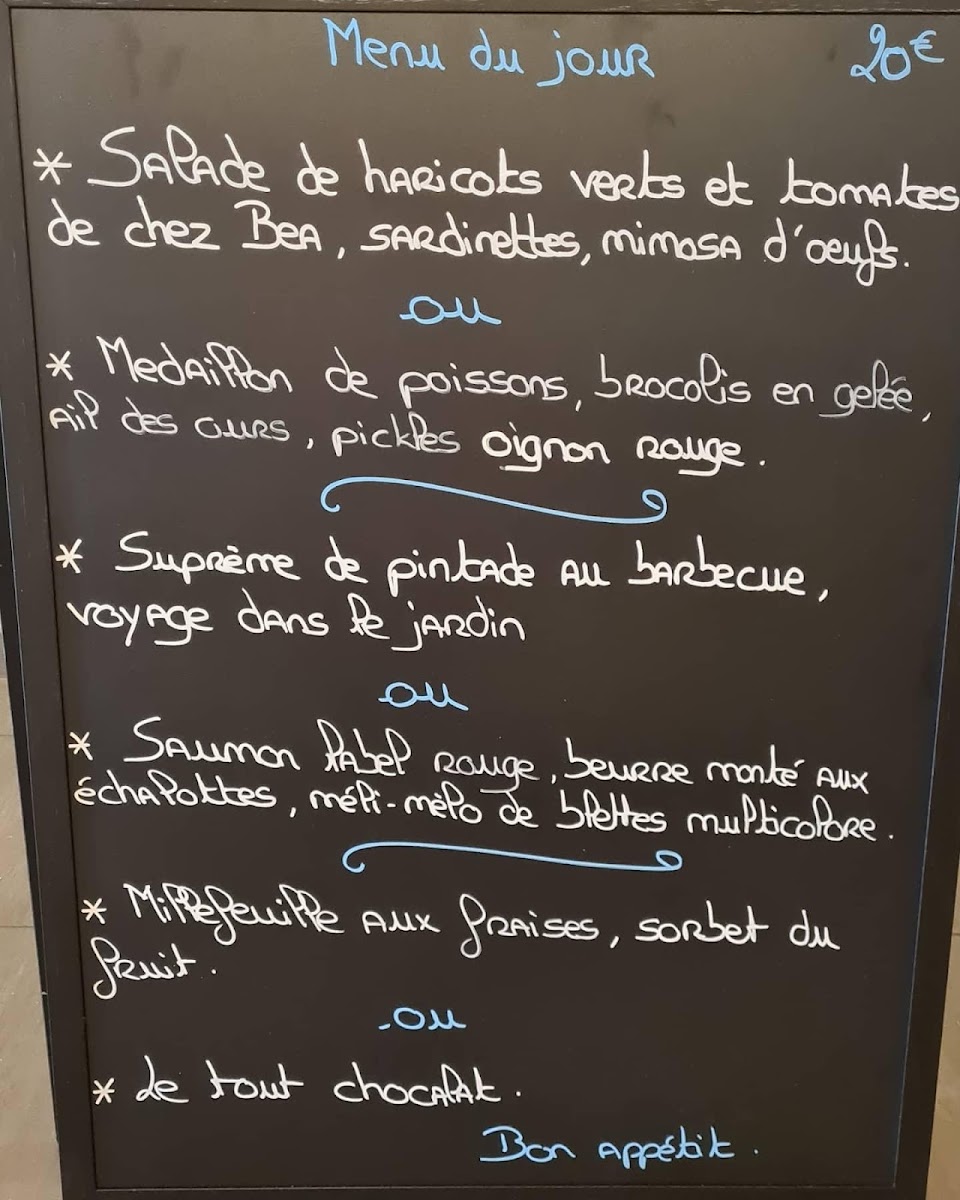 Menu du jour 20€
* Salade de haricots verts et tomates
de chez Bea, sardinettes, mimosa d'oeufs.
ou
* Medaillon de poissons, brocolis en gelée,
ail des ours, pickles oignon rouge.
* Suprême de pintade au barbecue,
voyage dans le jardin
ou
* Saumon label rouge, beurre monté aux
échalottes, méli-mélo de blettes multicolore.
* Millefeuille aux fraises, sorbet du
fruit.
ou
* Le tout chocolat.
Bon appétit.